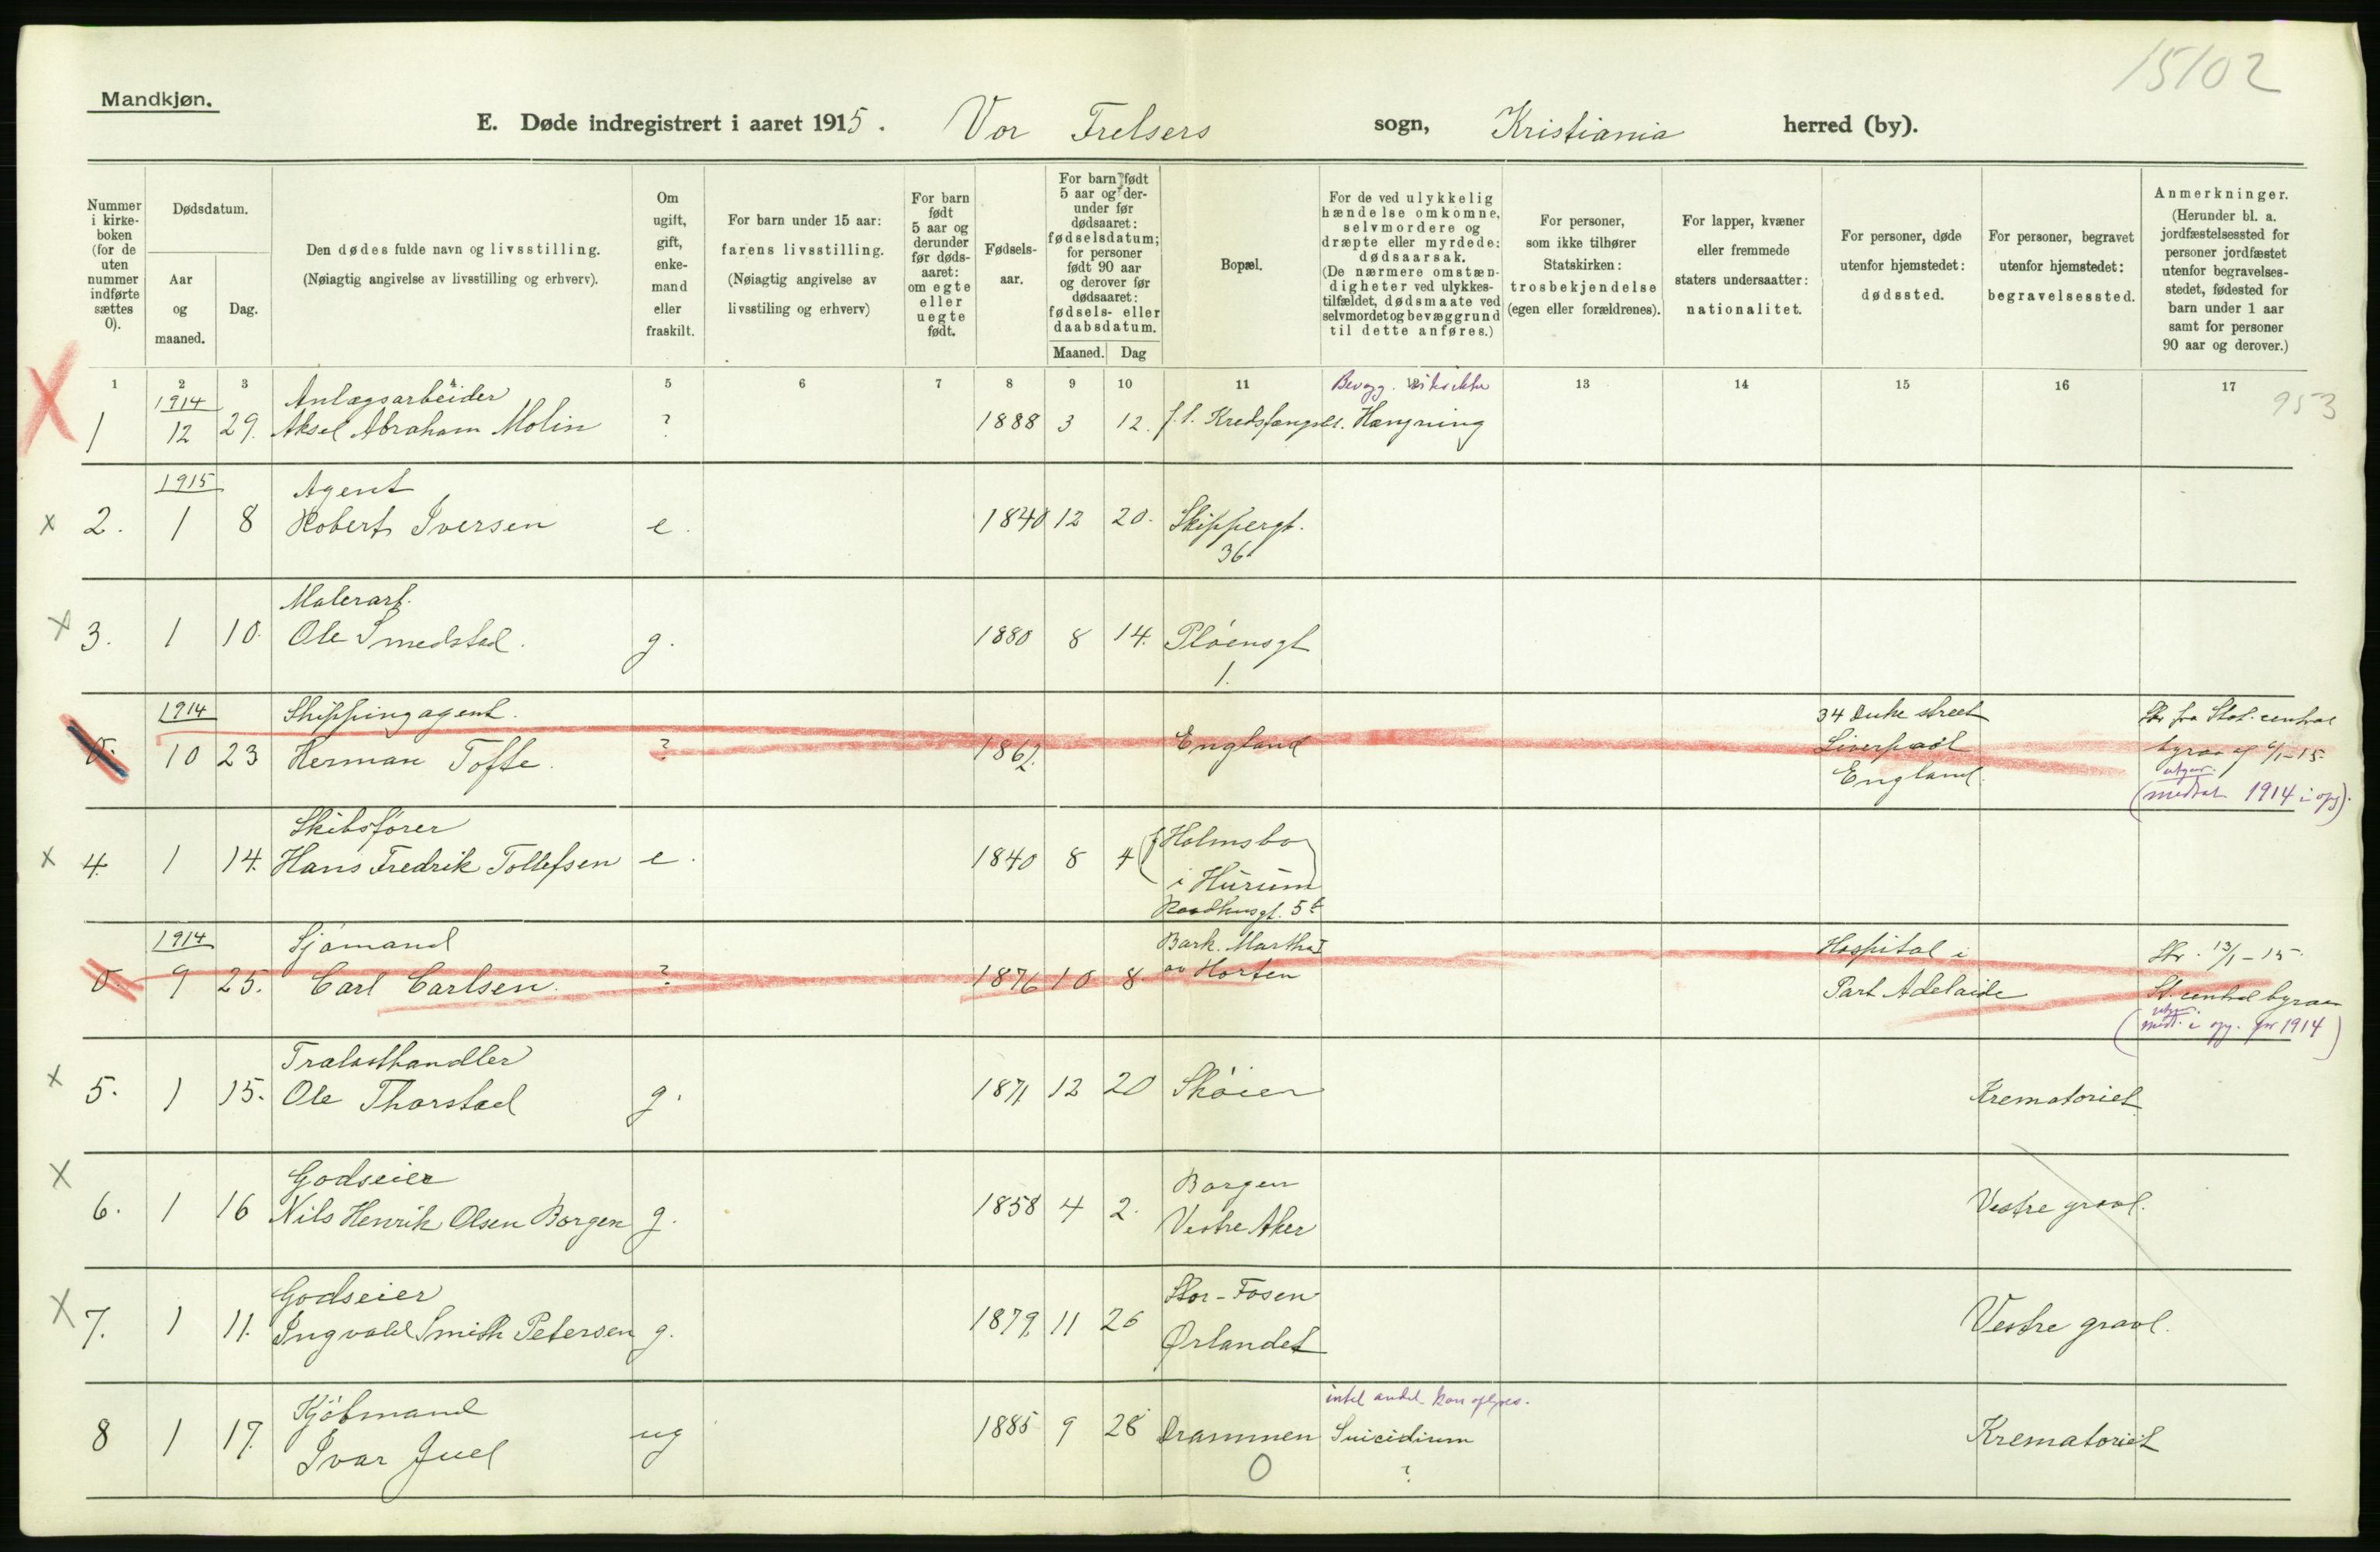 15102
Mandkjøn.
E. Døde indregistrert i aaret 1915. Vor Frelsers sogn, Kristiania herred (by).
Nummer i kirke-boken (for de uten nummer indførte sættes 0).
Dødsdatum.
Aar og maaned.
Dag.
Den dødes fulde navn og livsstilling.
(Nøiagtig angivelse av livsstilling og erhverv).
Om ugift, gift, enke-mand eller fraskilt.
For barn under 15 aar: farens livsstilling.
(Nøiagtig angivelse av livsstiling og erhverv)
For barn født 5 aar og derunder før døds-aaret: om egte eller uegte født.
Fødsels-aar.
For barn født 5 aar og der-under før dødsaaret: fødselsdatum; for personer født 90 aar og derover før dødsaaret: fødsels- eller daabsdatum.
Maaned. Dag
Bopæl.
For de ved ulykkelig hændelse omkomne, selvmordere og dræpte eller myrdede: dødsaarsak.
(De nærmere omstæn-digheter ved ulykkes-tilfældet, dødsmaate ved selvmordet og bevæggrund til dette anføres.)
For personer, som ikke tilhører Statskirken: trosbekjendelse (egen eller forældrenes).
For lapper, kvæner eller fremmede staters undersaatter: nationalitet.
For personer, døde utenfor hjemstedet: dødssted.
For personer, begravet utenfor hjemstedet: begravelsessted.
Anmerkninger.
(Herunder bl. a. jordfæstelsessted for personer jordfæstet utenfor begravelses-stedet, fødested for barn under 1 aar samt for personer 90 aar og derover.)
1 2 3 4 5 6 7 8 9 10 11 12 13 14 15 16 17
1914 Anlægsarbeider Bevægg. 953
1 12 29. Aksel Abraham Molin ? 1888 3 12. f. t. Kredsfængsl. Hængning
1915 Agent
x 2. 1 8 Robert Iversen e. 1840 12 20. Skippergt.
36
Malerarb.
x 3. 1 10. Ole Smedstad. g. 1880 8 14. Pløensgt
1.
1914 Shippingagent. 34 Duke street Skr fra Stat. central
0. 10 23 Herman Tofte. ? 1862. England Liverpool byraa af 6/1-15
England. utgaar.
(medtat 1914 i opg).
Skibsfører (f Holmsbo
x 4. 1 14. Hans Fredrik Tollefsen e. 1840 8 4 i Hurum)
Raadhusgt. 5b
1914 Sjømand Bark. Martha I Hospital i Skr. 13/1-15.
0. 9 25. Carl Carlsen. ? 1876 10 8. av Horten Port Adelaide St. central byraa
(medt. i opg. for 1914)
Trælasthandler
x 5. 1 15. Ole Thorstad g. 1871 12 20 Skøien Krematoriet
Godseier Borgen
x 6. 1 16 Nils Henrik Olsen Borgen g. 1858 4 2. Vestre Aker Vestre gravl.
Godseier Stor-Fosen
x 7. 1 11. Ingvald Smith Petersen g. 1879. 11 26 Ørlandet Vestre gravl.
Kjøbmand intet andet kan oplyses.
8 1 17. Ivar Juel ug 1885 9 28 Drammen Suicidium Krematoriet
0 ?